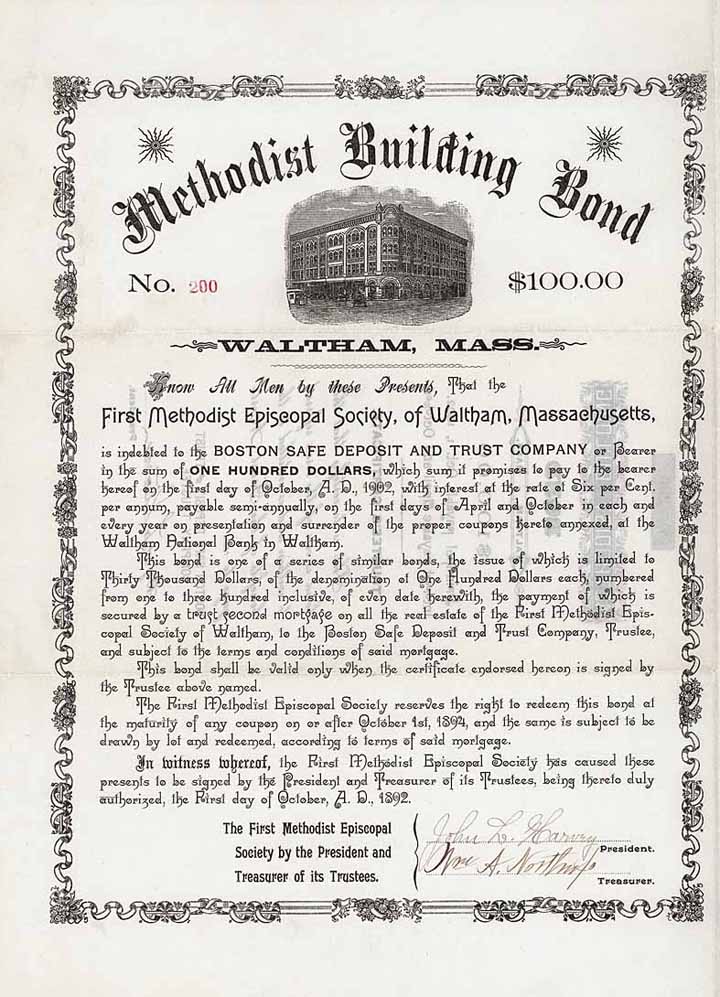 Methodist Building Bond
No. 200
$100.00
WALTHAM, MASS.
Know All Men by these Presents, That the
First Methodist Episcopal Society, of Waltham, Massachusetts,
is indebted to the BOSTON SAFE DEPOSIT AND TRUST COMPANY or Bearer
in the sum of ONE HUNDRED DOLLARS, which sum it promises to pay to the bearer
hereof on the first day of October, A. D., 1902, with interest at the rate of Six per Cent.
per annum, payable semi-annually, on the first days of April and October in each and
every year on presentation and surrender of the proper coupons hereto annexed, at the
Waltham National Bank in Waltham.
This bond is one of a series of similar bonds, the issue of which is limited to
Thirty Thousand Dollars, of the denomination of One Hundred Dollars each, numbered
from one to three hundred inclusive, of even date herewith, the payment of which is
secured by a trust second mortgage on all the real estate of the First Methodist Epis-
copal Society of Waltham, to the Boston Safe Deposit and Trust Company, Trustee,
and subject to the terms and conditions of said mortgage.
This bond shall be valid only when the certificate endorsed hereon is signed by
the Trustee above named.
The First Methodist Episcopal Society reserves the right to redeem this bond at
the maturity of any coupon on or after October 1st, 1894, and the same is subject to be
drawn by lot and redeemed, according to terms of said mortgage.
In witness whereof, the First Methodist Episcopal Society has caused these
presents to be signed by the President and Treasurer of its Trustees, being thereto duly
authorized, the First day of October, A. D., 1892.
The First Methodist Episcopal
Society by the President and
Treasurer of its Trustees.
John L. Harvey
President.
Wm A. Northrop
Treasurer.